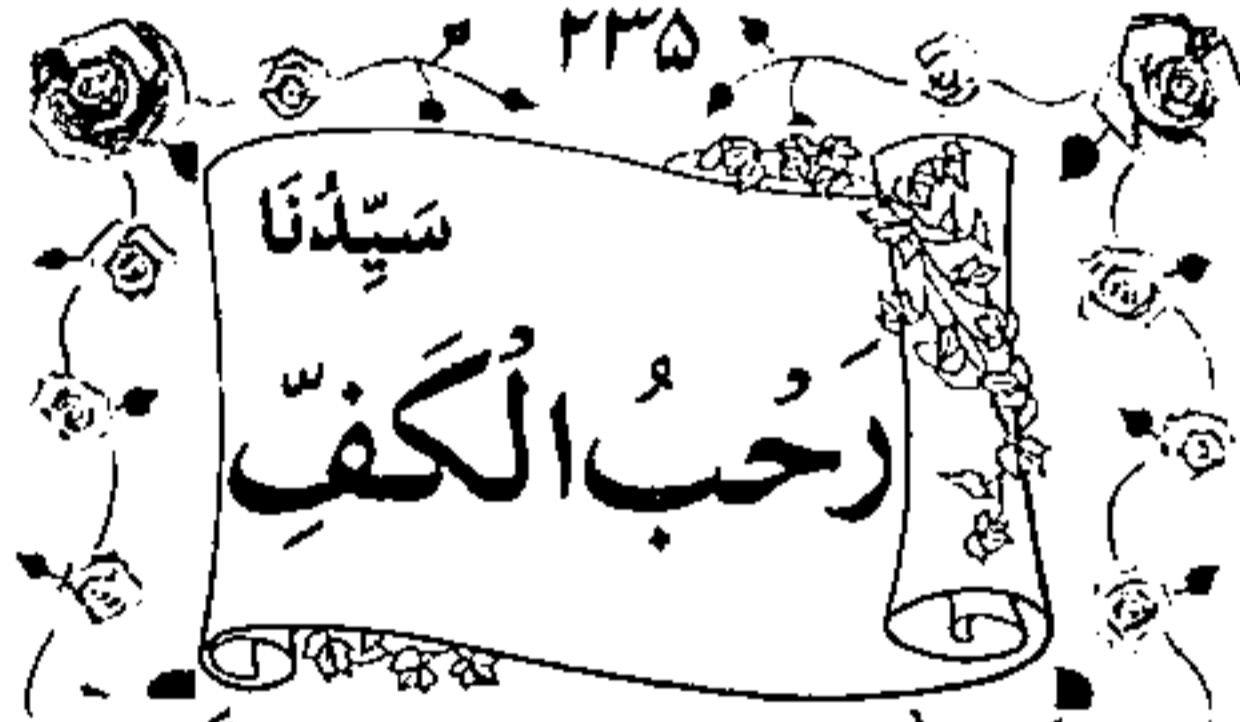 ۲۳۵
سَيِّدُنَا
رَحُبُ الُكَفِّ